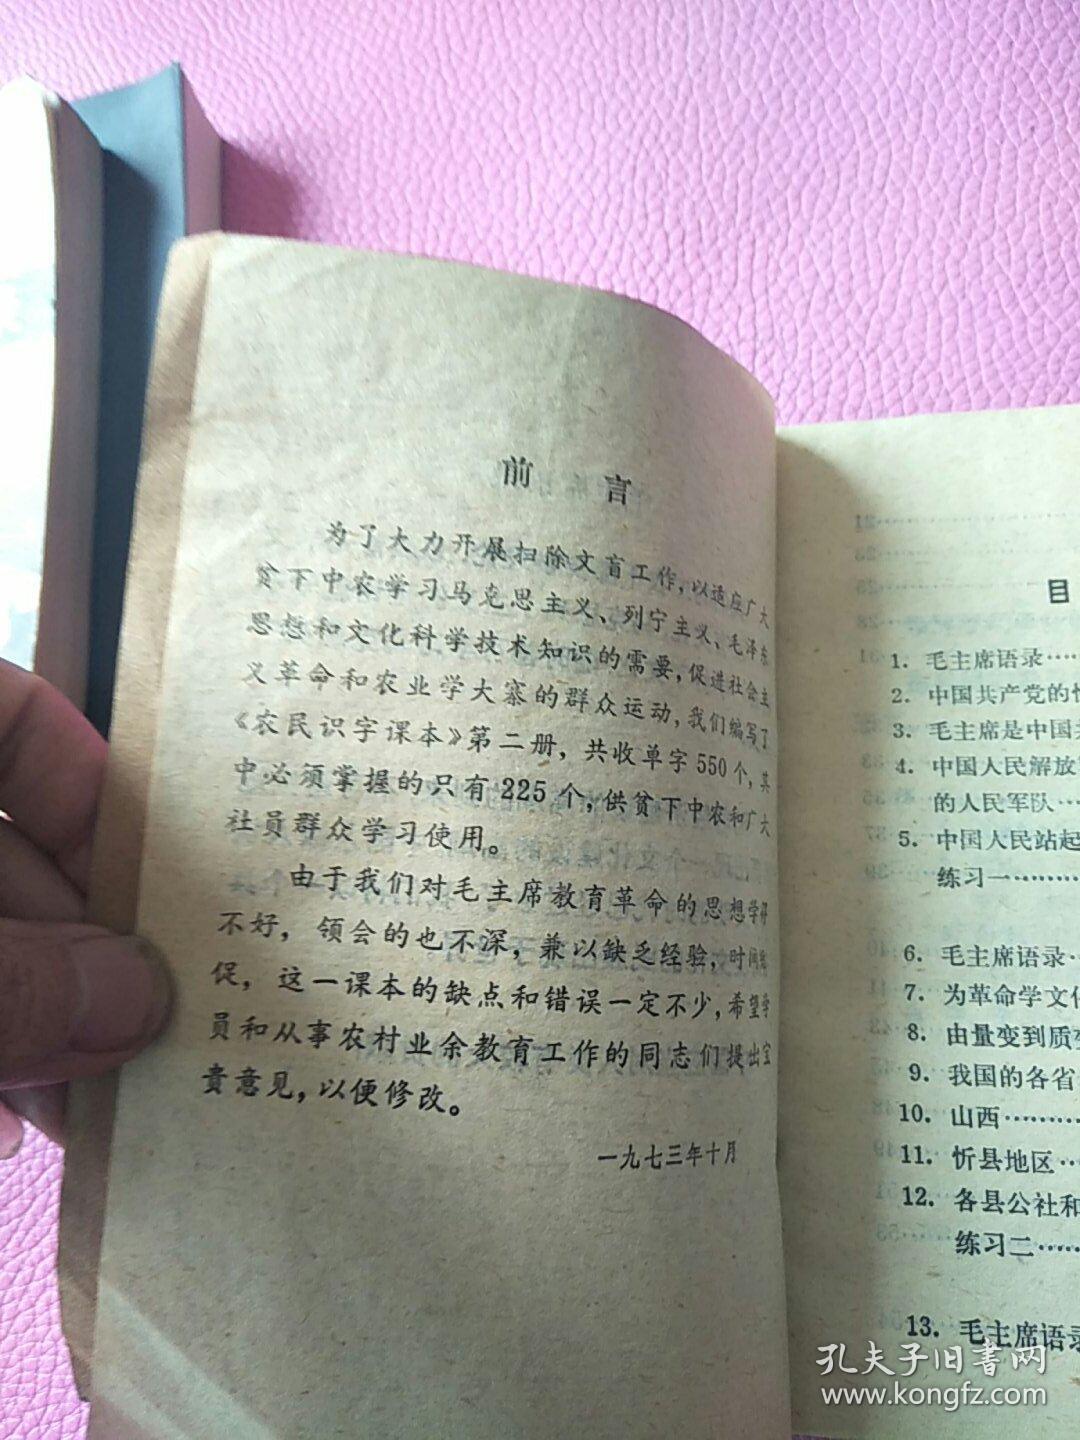 前言
为了大力开展扫除文盲工作，以适应广大
贫下中农学习马克思主义、列宁主义、毛泽东
思想和文化科学技术知识的需要，促进社会主
义革命和农业学大寨的群众运动，我们编写了
《农民识字课本》第二册，共收单字550个，其
中必须掌握的只有225个，供贫下中农和广大
社员群众学习使用。
由于我们对毛主席教育革命的思想学得
不好，领会的也不深，兼以缺乏经验，时间
促，这一课本的缺点和错误一定不少，希望学
员和从事农村业余教育工作的同志们提出宝
贵意见，以便修改。
一九七三年十月
目
1. 毛主席语录……
2. 中国共产党的
3. 毛主席是中国
4. 中国人民解放
的人民军队……
5. 中国人民站起
练习一…………
6. 毛主席语录…
7. 为革命学文化
8. 由量变到质变
9. 我国的各省
10. 山西…………
11. 忻县地区……
12. 各县公社和
练习二……
13. 毛主席语录
孔夫子旧书网
www.kongfz.com